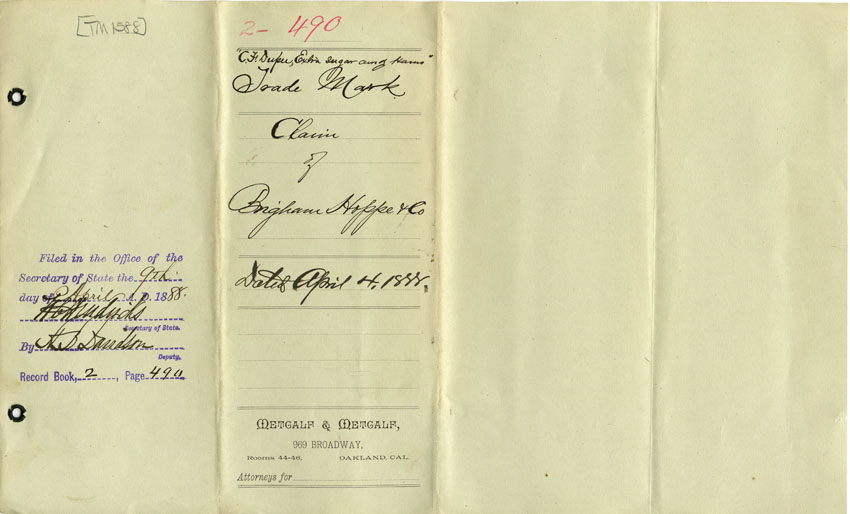 [TM 1588]
Filed in the Office of the
Secretary of State the 9th
day of April A. D. 1888.
Secretary of State.
By A. D. Davidson
Deputy.
Record Book, 2, Page 490
2- 490
"C. F. Dupee, Extra Sugar Hams"
Trade Mark
Claim
of
Brigham Hoppe & Co
Dated April 4, 1888.
METCALF & METCALF,
969 BROADWAY,
Rooms 44-46, OAKLAND, CAL.
Attorneys for